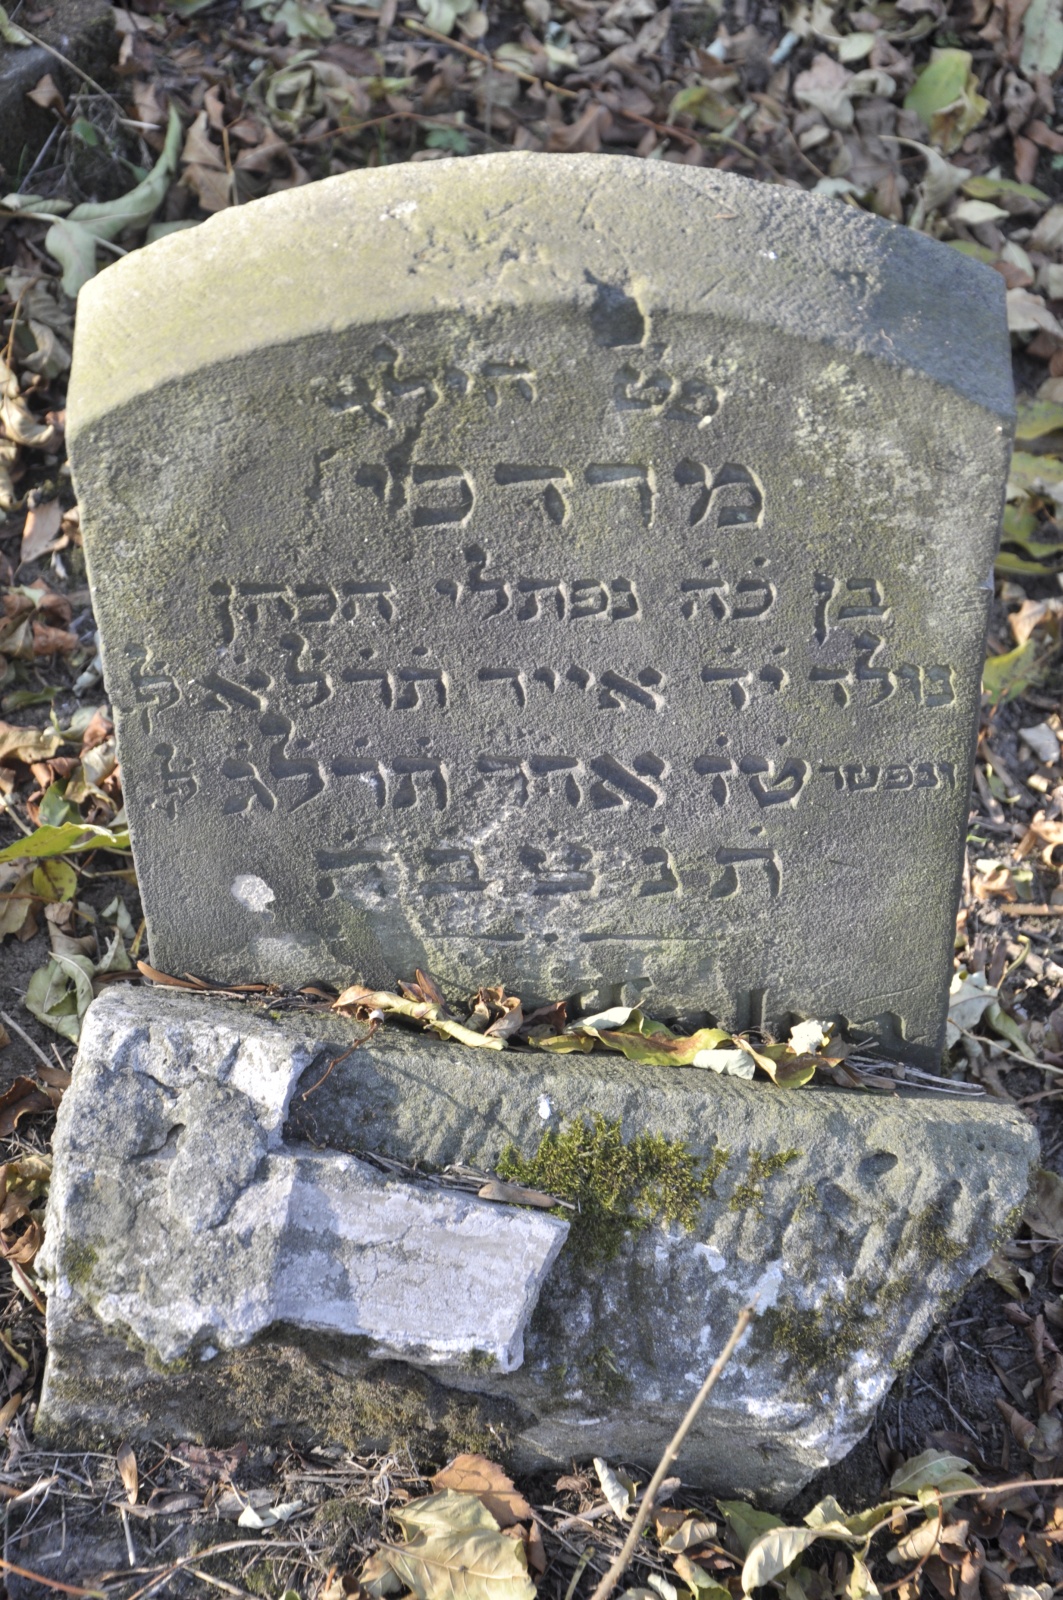 פט הילד
מרדכי
בן כ׳ה׳ נפתלי הכהן
נולד י׳ד׳ אייר ת׳ר׳ל׳א׳ ל׳פ׳ק׳
ונפטר ט׳ז׳ אדר ת׳ר׳ל׳ג׳ ל׳
ת׳נ׳צ׳ב׳ה׳